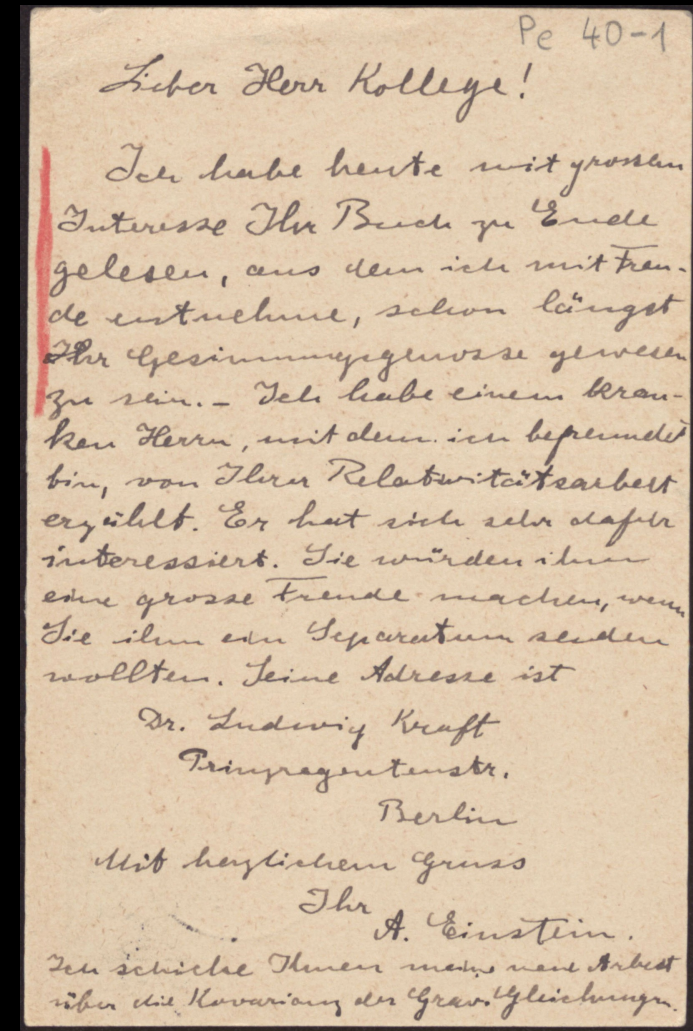 Pe 40-1
Lieber Herr Kollege!
Ich habe heute mit grossem
Interesse Ihr Buch zu Ende
gelesen, aus dem ich mit Freu-
de entnehme, schon längst
Ihr Gesinnungsgenosse gewesen
zu sein. – Ich habe einem kran-
ken Herrn, mit dem ich befreundet
bin, von Ihrer Relativitätsarbeit
erzählt. Er hat sich sehr dafür
interessiert. Sie würden ihm
eine grosse Freude machen, wenn
Sie ihm ein Separatum senden
wollten. Seine Adresse ist
Dr. Ludwig Kraft
Prinzregentenstr.
Berlin
Mit herzlichem Gruss
Ihr
A. Einstein.
Ich schicke Ihnen meine neue Arbeit
über die Kovarianz der Grav. Gleichungen.